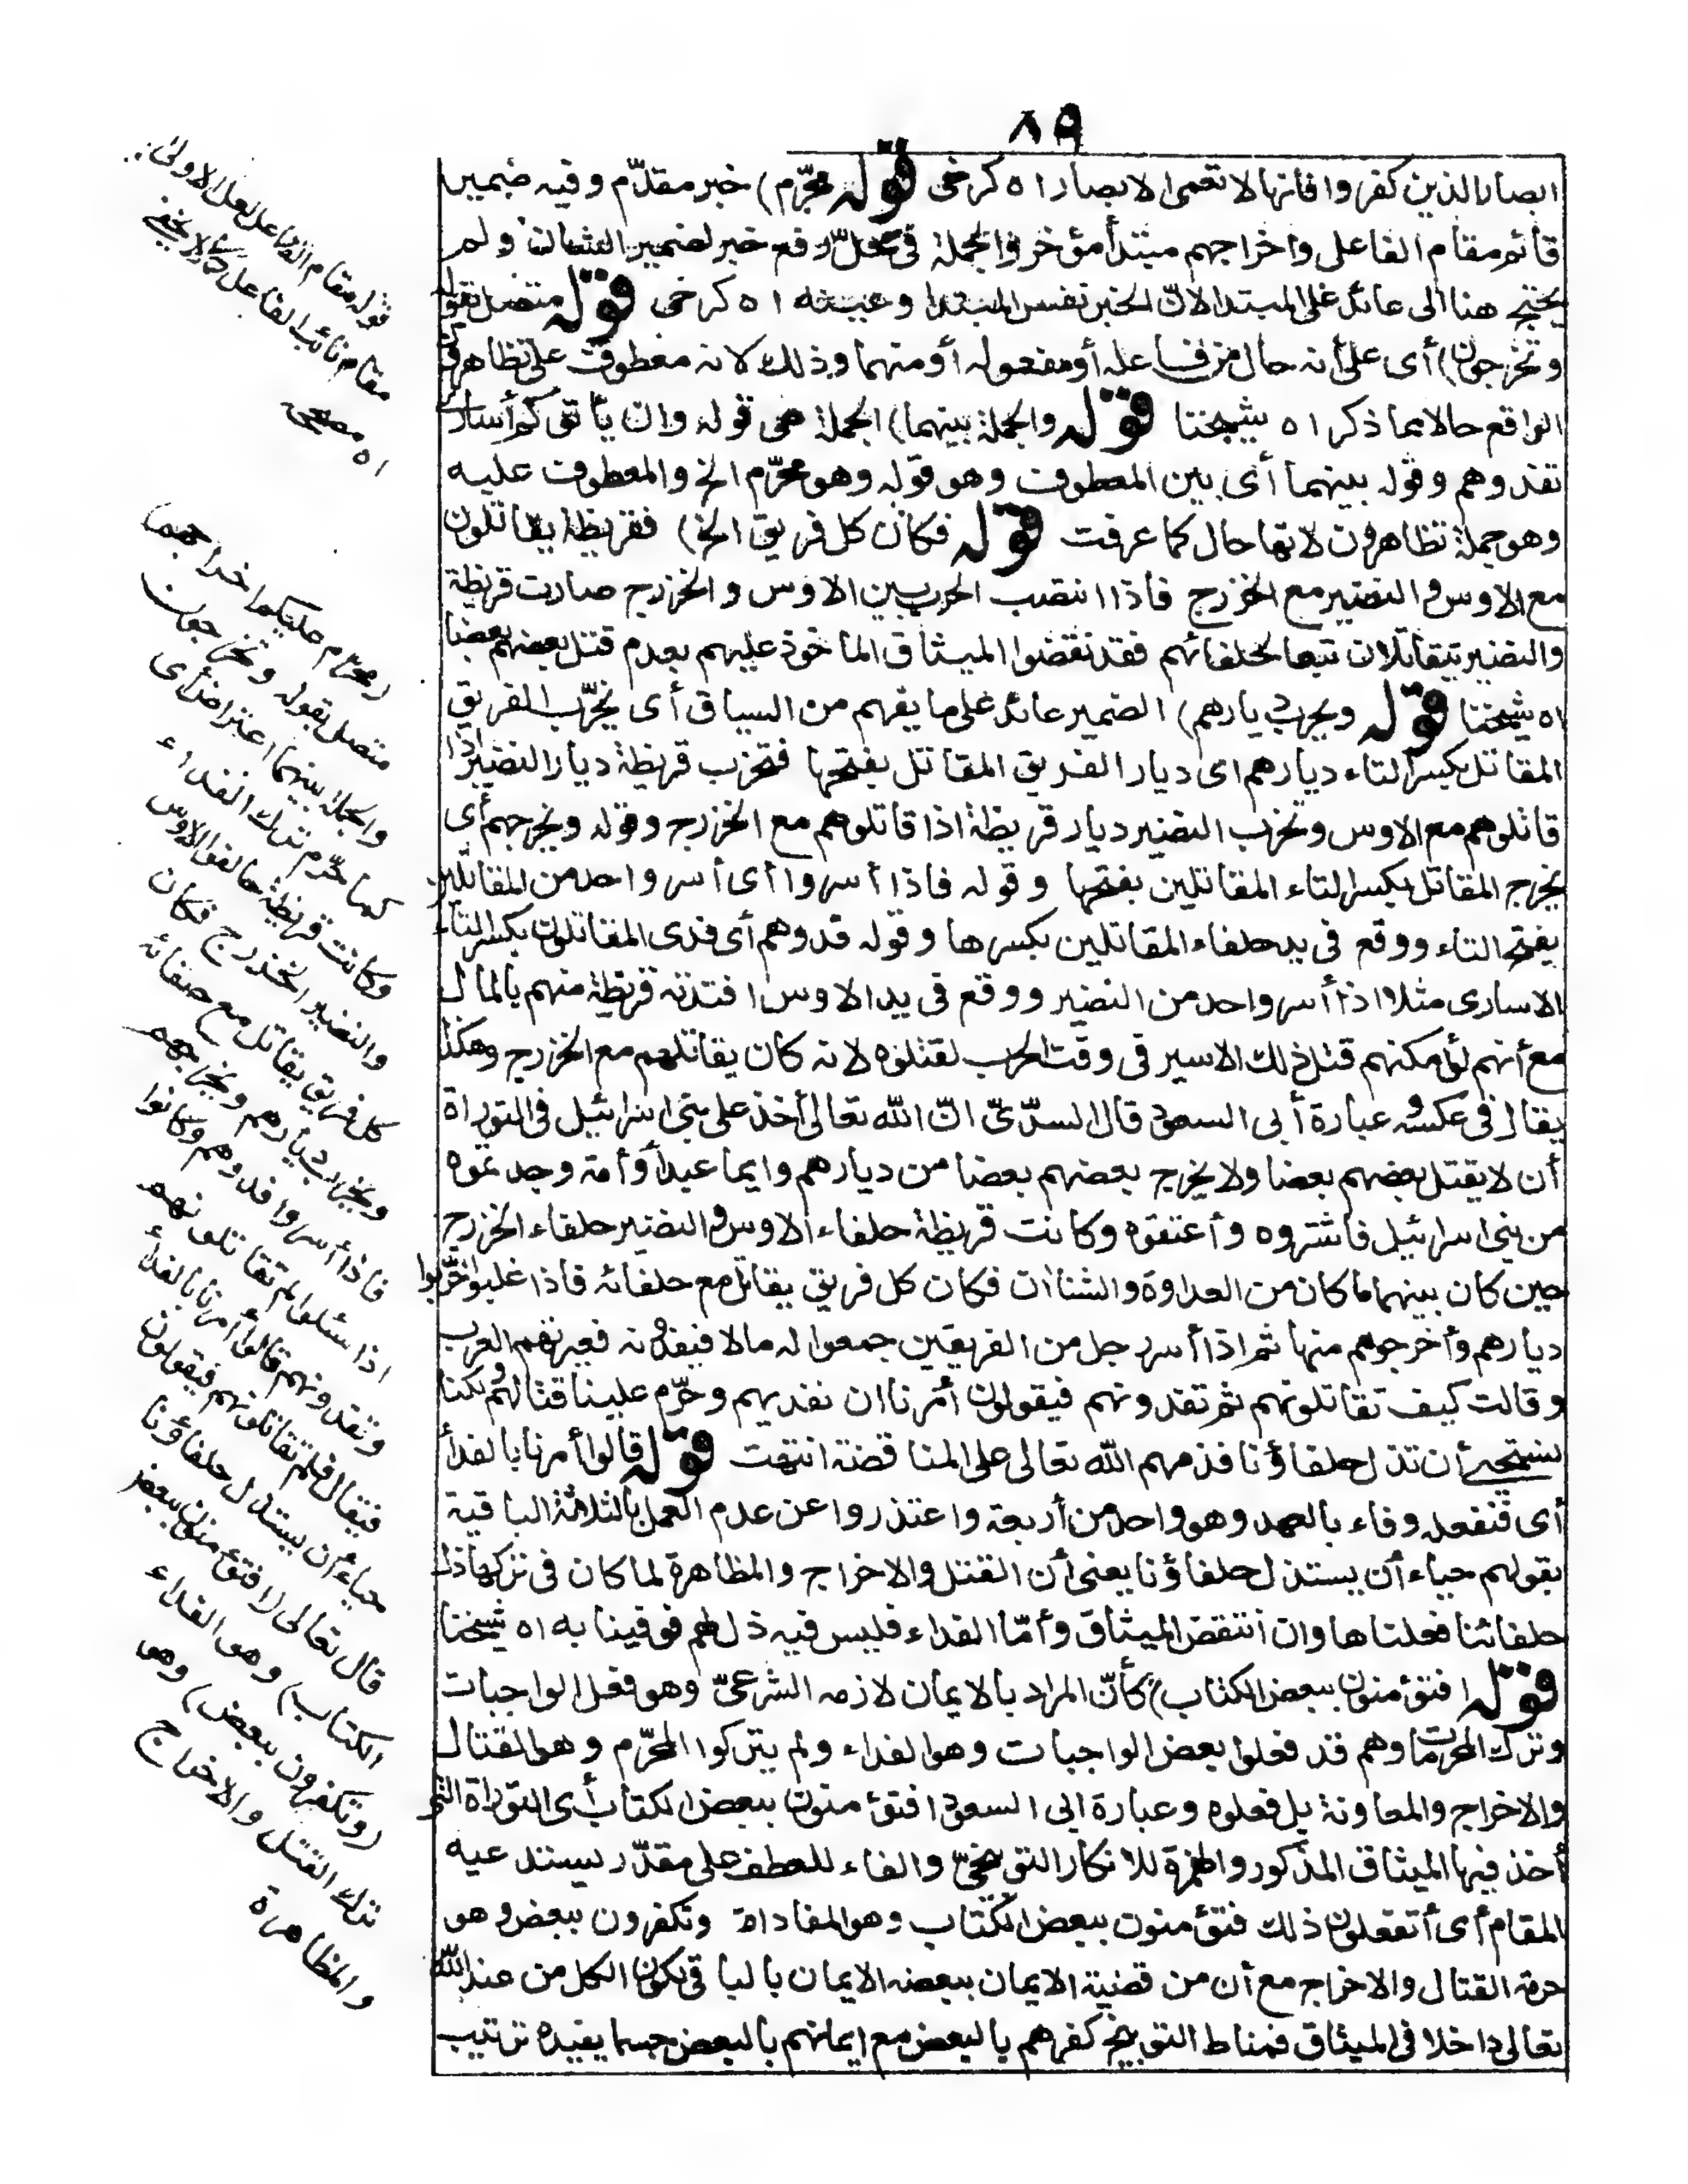 ٨٩
ابصار الذين كفروا فانها لا تعمى الابصار ا ه كرخى قوله محرّم) خبر مقدّم وفيه ضمير
قائم مقام الفاعل واخراجهم مبتدأ مؤخر والجملة فى محلّ رفع خبر لضمير الشان ولم
يحتج هنا الى عائد على المبتدا لانّ الخبر نفس المبتدا وعينه ا ه كرخى قوله متصل بقوله
وتخرجون) أى على أنه حال من فاعله أو مفعوله أو منهما وذلك لانه معطوف على تظاهرون
الواقع حالا مما ذكر ا ه شيخنا قوله والجملة بينهما) الجملة هى قوله وان يأتوكم أسارى
تفدوهم وقوله بينهما أى بين المعطوف وهو قوله وهو محرّم الخ والمعطوف عليه
وهو جملة تظاهرون لانها حال كما عرفت قوله فكان كل فريق الخ) فقريظة يقاتلون
مع الاوس والنضير مع الخزرج فاذا انتصب الحرب بين الاوس والخزرج صارت قريظة
والنضير يتقاتلان تبعا لحلفائهم فقد نقضوا الميثاق المأخوذ عليهم بعدم قتل بعضهم بعضا
اه شيخنا قوله ويخرب ديارهم) الضمير عائد على ما يفهم من السياق أى يخرّب الفريق
المقاتل بكسر التاء ديارهم اى ديار الفريق المقاتل بفتحها فتخرب قريظة ديار النضير اذا
قاتلوهم مع الاوس وتخرب النضير ديار قريظة اذا قاتلوهم مع الخزرج وقوله ويخرجهم أى
يخرج المقاتل بكسر التاء المقاتلين بفتحها وقوله فاذا أسروا أى أسر واحد من المقاتلين
بفتح التاء ووقع فى يد حلفاء المقاتلين بكسرها وقوله فدوهم أى فدى المقاتلون بكسر التاء
الاسارى مثلا اذا أسر واحد من النضير ووقع فى يد الاوس افتدته قريظة منهم بالمال
مع أنهم لو أمكنهم قتل ذلك الاسير فى وقت الحرب لقتلوه لانه كان يقاتلهم مع الخزرج وهكذا
يقال فى عكسه وعبارة أبى السعود قال السدّىّ انّ الله تعالى أخذ على بنى اسرائيل فى التوراة
أن لا يقتل بعضهم بعضا ولا يخرج بعضهم بعضا من ديارهم وايما عبد أو أمة وجدتموه
من بنى اسرائيل فاشتروه وأعتقوه وكانت قريظة حلفاء الاوس والنضير حلفاء الخزرج
حين كان بينهما ما كان من العداوة والشنآن فكان كل فريق يقاتل مع حلفائه فاذا غلبوا خرّبوا
ديارهم وأخرجوهم منها ثم اذا أسر رجل من الفريقين جمعوا له مالا فيفدونه فعيرتهم العرب
وقالت كيف تقاتلونهم ثم تفدونهم فيقولون أمرنا ان نفديهم وحرّم علينا قتالهم ولكنا
نستحيى أن تذل حلفاؤنا فذمهم الله تعالى على المناقضة انتهت قوله قالوا أمرنا بالفداء
أى فنفعله وفاء بالعهد وهو واحد من أربعة واعتذروا عن عدم العمل بالثلاثة الباقية
بقولهم حياء أن يستذل حلفاؤنا يعنى أن القتل والاخراج والمظاهرة لما كان فى تركها ذل
حلفائنا فعلناها وان انتقض الميثاق وأمّا الفداء فليس فيه ذل لهم فوفينا به اه شيخنا
قوله افتؤمنون ببعض الكتاب) كأنّ المراد بالايمان لازمه الشرعىّ وهو فعل الواجبات
وترك المحرمات وهم قد فعلوا بعض الواجبات وهو الفداء ولم يتركوا المحرّم وهو القتال
والاخراج والمعاونة بل فعلوه وعبارة ابى السعود افتؤمنون ببعض الكتاب أى التوراة التى
أخذ فيها الميثاق المذكور والهمزة للانكار التوبيخىّ والفاء للعطف على مقدّر يستدعيه
المقام أى أتفعلون ذلك فتؤمنون ببعض الكتاب وهو المفاداة وتكفرون ببعض وهو
حرمة القتال والاخراج مع أن من قضية الايمان ببعضه الايمان بالباقى لكون الكل من عند الله
تعالى داخلا فى الميثاق فمناط التوبيخ كفرهم بالبعض مع ايمانهم بالبعض حسبما يفيده ترتيب
قوله مقام الفاعل لعل الاولى
مقام نائب الفاعل كما لا يخفى
ا ه مصححه
(محرّم عليكم اخراجهم)
متصل بقوله وتخرجون
والجملة بينهما اعتراض أى
كما حرّم ترك الفداء
وكانت قريظة حالفوا الاوس
والنضير الخزرج فكان
كل فريق يقاتل مع حلفائه
ويخرب ديارهم ويخرجهم
فاذا أسروا فدوهم وكانوا
اذا سئلوا لم تقاتلونهم
وتفدونهم قالوا أمرنا بالفداء
فيقال فلم تقاتلونهم فيقولون
حياء أن يستذل حلفاؤنا
قال تعالى (افتؤمنون ببعض
الكتاب) وهو الفداء
(وتكفرون ببعض) وهو
ترك القتل والاخراج
والمظاهرة